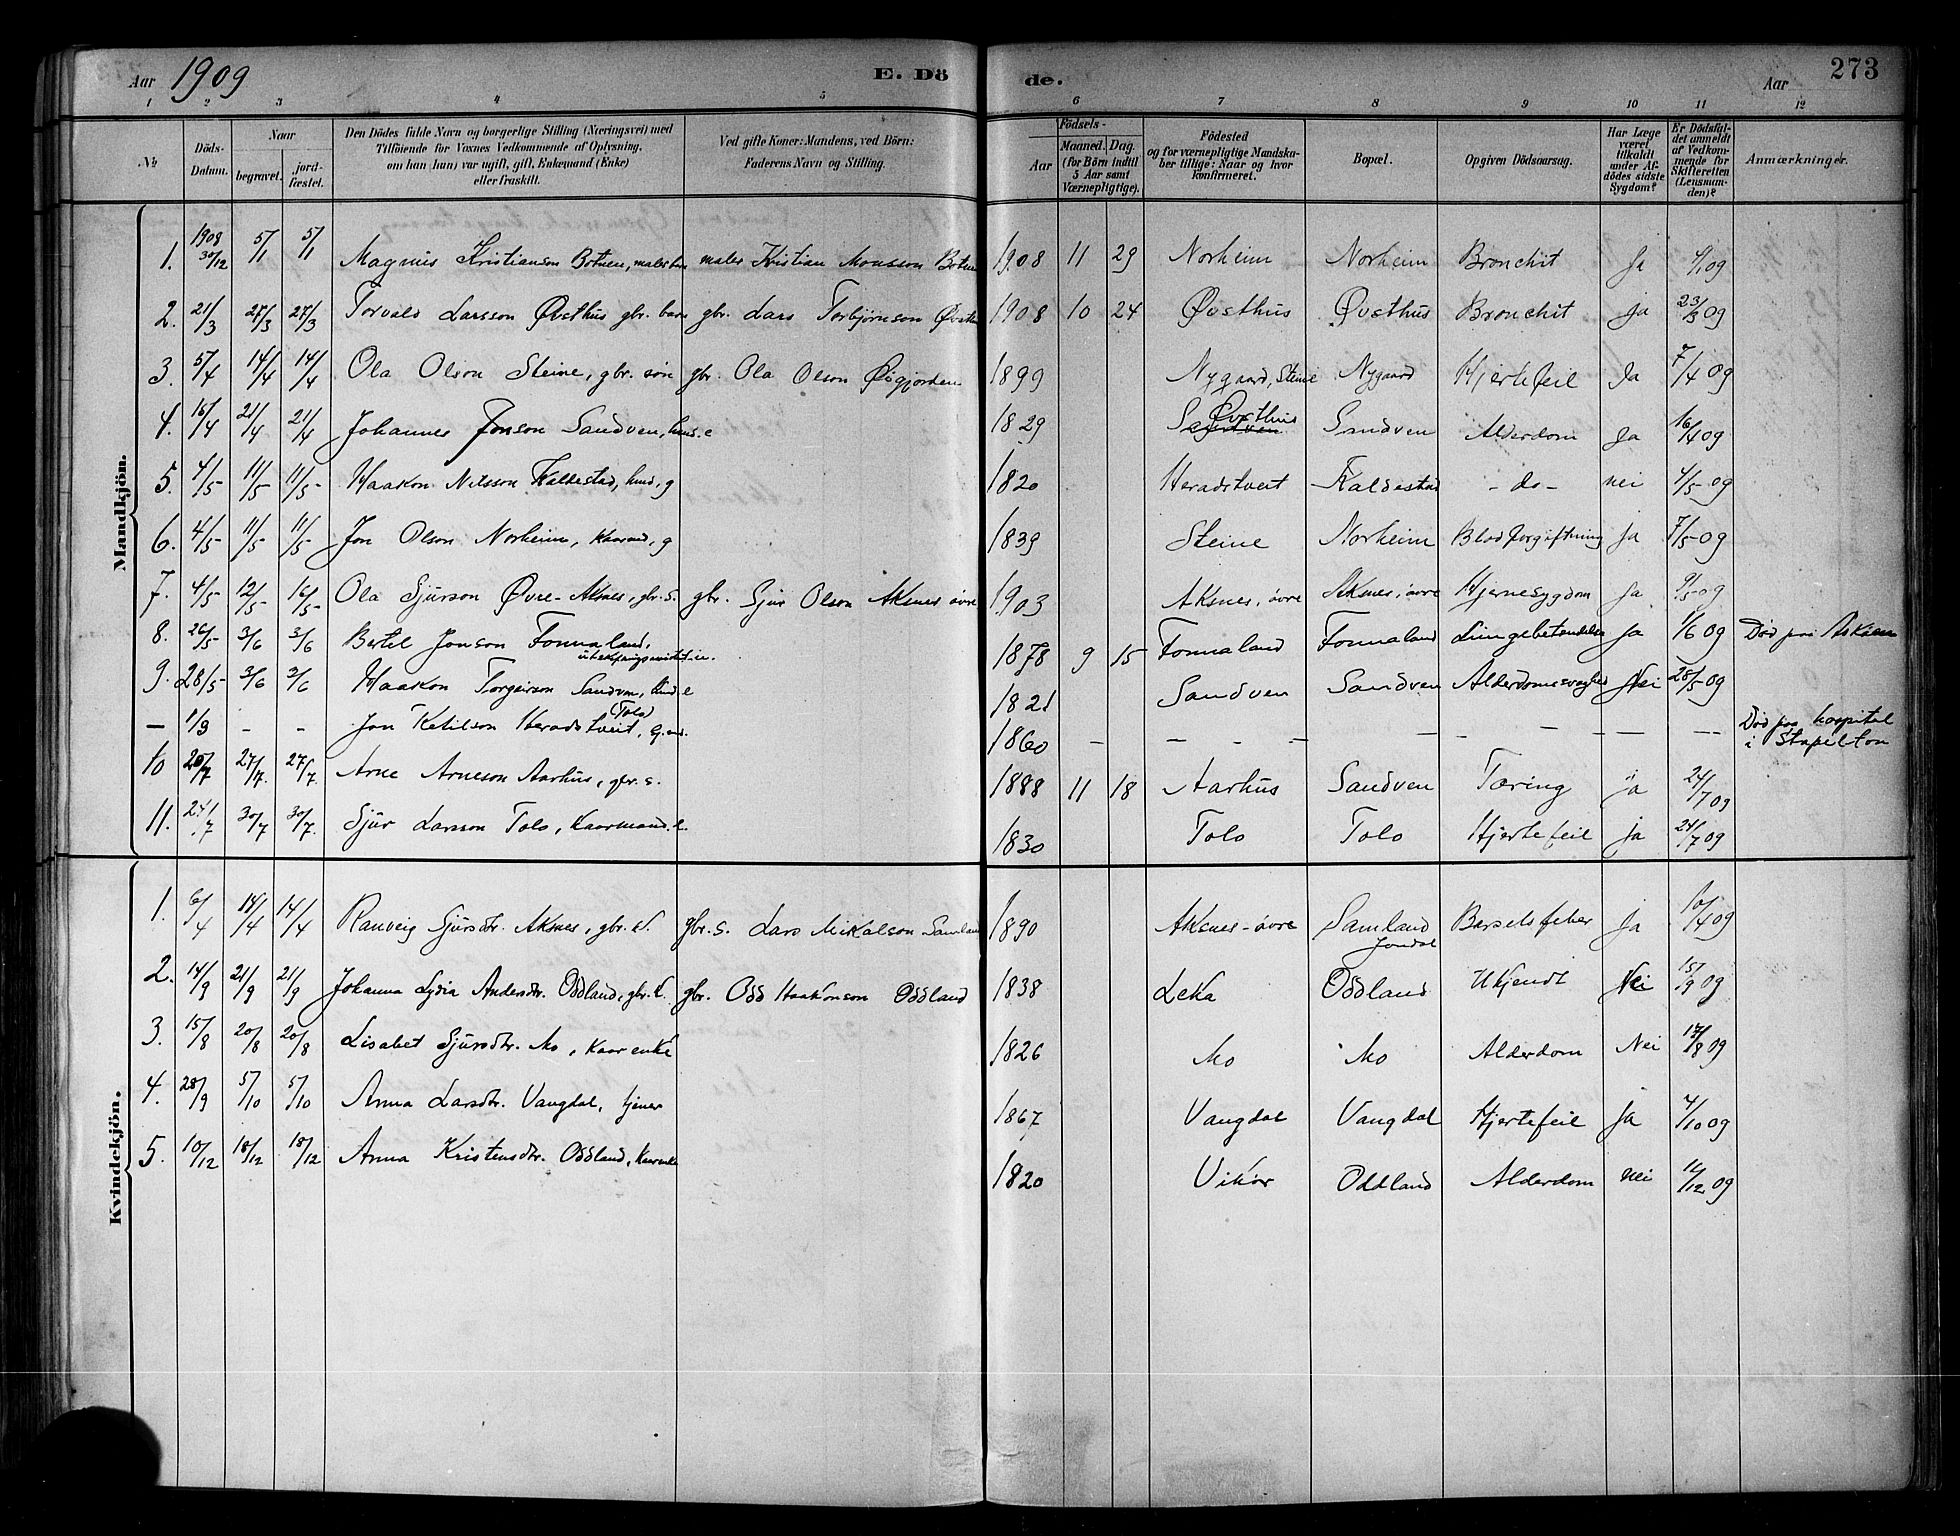 Aar 1909 E. Dö de. Aar 273
1 2 3 4 5 6 7 8 9 10 11 12
№ Döds-Datum. Naar begravet. jord-fæstet. Den Dödes fulde Navn og borgerlige Stilling (Næringsvei) med Tilföiende for Voxnes Vedkommende af Oplysning, om han (hun) var ugift, gift, Enkemand (Enke) eller fraskilt. Ved gifte Koner: Mandens, ved Börn: Faderens Navn og Stilling. Födsels- Aar Maaned. Dag. (for Börn indtil 5 Aar samt Værnepligtige). Födested og for værnepligtige Mandskaber tillige: Naar og hvor konfirmeret. Bopæl. Opgiven Dödsaarsag. Har Læge været tilkaldt under Afdödes sidste Sygdom? Er Dödsfaldet anmeldt af Vedkommende for Skifteretten (Lensmanden)? Anmærkninger.
Mandkjön.
1. 1908 30/12 5/1 5/1 Magnus Kristianson Botnen, maler maler Kristian Monsson Botnen 1908 11 29 Norheim Norheim Bronchit Ja 4/1 09
2. 21/3 27/3 27/3 Torvald Larsson Øvsthus gbr. barn gbr. Lars Torbjørnson Øvsthus 1908 10 24 Øvsthus Øvsthus Bronchit ja 23/3 09
3. 5/4 14/4 14/4 Ola Olson Steine, gbr. søn gbr. Ola Olson Øvgjorden 1899 Nygaard, Steine Nygaard Hjertefeil Ja 7/4 09
4. 15/4 21/4 21/4 Johannes Jonson Sandven, hus. e 1829 Øvsthus Sandven Alderdom Ja 16/4 09
5. 4/5 11/5 11/5 Haakon Nilsson Kaldestad, husd, g 1820 Heradstveit Kaldestad - do - nei 4/5-09
6. 4/5 11/5 11/5 Jon Olson Norheim, kaarmd, g 1839 Steine Norheim Blodforgiftning ja 7/5-09
7. 4/5 12/5 16/5 Ola Sjurson Øvre-Aksnes, gbr. s. gbr. Sjur Olson Aksnes øvre 1903 Aksnes, øvre Aksnes, øvre Hjernesygdom ja 9/5-09
8. 26/5 3/6 3/6 Bertel Jonson Fonnaland, 1878 9 15 Fonnaland Fonnaland Lungebetændelse ja 1/6 09 Død paa Askøen
9. 28/5 3/6 3/6 Haakon Torgeirson Sandven, husd. e 1821 Sandven Sandven Alderdomssvaghed Nei 28/5 09
— 1/3 - - Jon Ketilson Heradstveit, (Tolo) g.md. 1860 - - - - - - - - Død paa hospital i Stapelton
10 20/7 27/7 27/7 Arne Arneson Aarhus, gbr. s. 1888 11 18 Aarhus Sandven Tæring ja 24/7 09
11. 24/7 30/7 30/7. Sjur Larsson Tolo, Kaarmand. e. 1830 Tolo Tolo Hjertefeil ja 24/7 09
Kvindekjön.
1. 6/4 14/4 14/4 Ranveig Sjursdtr. Aksnes, gbr. k. gbr. s. Lars Mikalson Samland 1890 Aksnes-øvre Samland Jondal Barselsfeber Ja 10/4 09
2. 14/9 21/9 21/9 Johanna Lydia Andersdtr. Oddland, gbr. k. gbr. Odd Haakonson Oddland 1838 Leka Oddland Ukjendt Nei 15/9 09
3. 15/8 20/8 20/8 Lisabet Sjursdtr. Mo, Kaarenke 1826 Mo Mo Alderdom Nei 17/8 09
4. 28/9 5/10 5/10 Anna Larsdtr. Vangdal, tjener 1867 Vangdal Vangdal Hjertefeil ja 4/10 09
5. 10/12 18/12 18/12 Anna Kristensdtr. Oddland, Kaarenke 1820 Vikør Oddland Alderdom nei 12/12 09